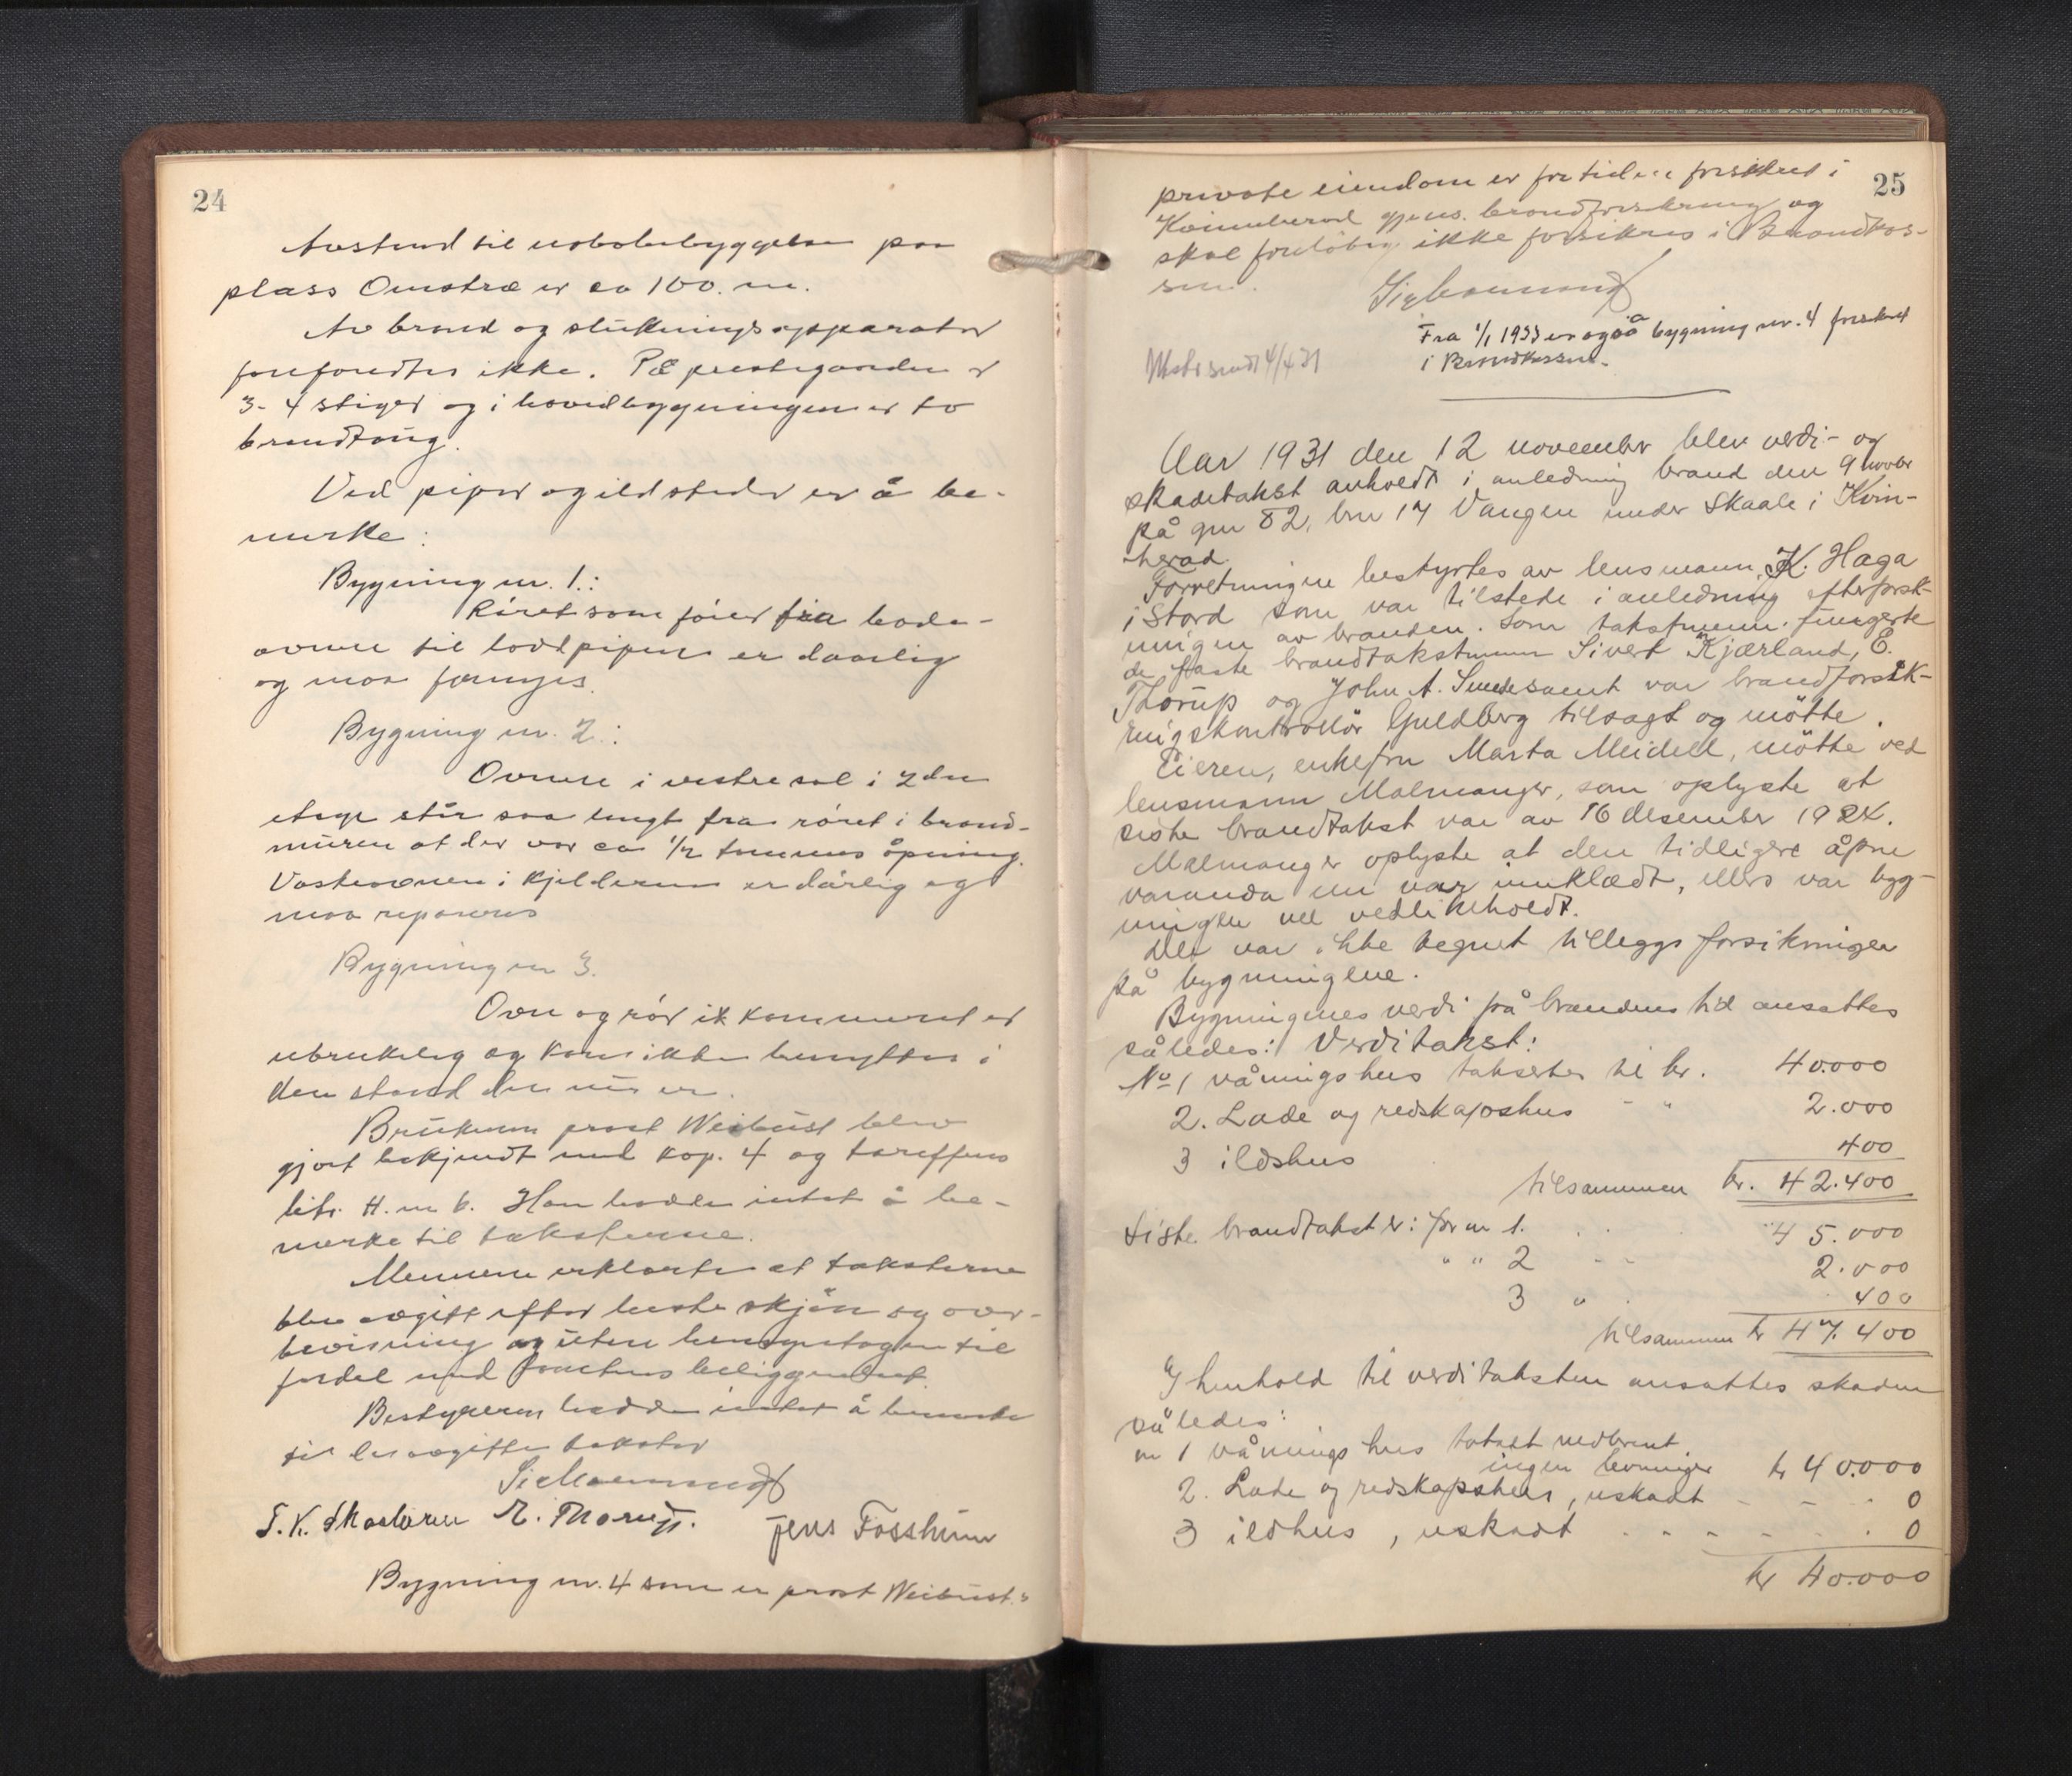 24
Avstand til nabobebyggelsen paa
plass Omstræ er ca 100. m.
Av brand og slukningsapparater
forefandtes ikke. På prestegarden er
3-4 stiger og i hovedbygningen er to
brandtaug.
Ved piper og ildsteder er å be-
merke:
Bygning nr. 1.:
Röret som förer fra bade-
ovnen til lodpipen er daarlig
og maa fornyes.
Bygning nr. 2.:
Ovnen i vestre sal i 2den
etage står saa langt fra röret i brand-
muren at der var ca 1/2 tommes åpning.
Vaskeovnen i kjelderen er dårlig og
maa repareres
Bygning nr 3.
Ovn og rör i kammeret er
ubrukelig og kan ikke benyttes i
den stand den nu er.
Brukeren prost Weibust blev
gjort bekjendt med kap. 4 og tariffens
litr. H. nr 6. Han hadde intet å be-
merke til taksterne.
Mennene erklærte at taksterne
blev avgitt efter beste skjön og over-
bevisning og uten hensyntagen til
fordel ved tomtens beliggenhet.
Bestyreren hadde intet å bemerke
til de avgitte takster
S. K. Skaaluren E. Thorup. Jens Fosshun
Bygning nr. 4 som er prost Weibust's
25
private eiendom er for tiden forsikret i
Kvinnherad gjens. brandforsikring og
skal forelöbig ikke forsikres i Brandkas-
sen.
Fra 1/1 1933 er også bygning nr. 4 forsikret
i Brandkassen.
sendt 4/4 31
Aar 1931 den 12 november blev verdi- og
skadetakst avholdt i anledning brand den 9 novbr
på gnr 82, bnr 17 Vangen under Skaale i Kvin-
herad.
Forretningen bestyrtes av lensmann K. Haga
i Stord som var tilstede i anledning efterforsk-
ningen av branden. Som takstmenn fungerte
de faste brandtakstmenn Sivert Kjærland, E.
Thorup og John A. samt var brandforsik-
ringskontrollör Guldberg tilsagt og mötte.
Eieren, enkefru Marta Meidell, mötte ved
lensmann Malmanger, som oplyste at
siste brandtakst var av 16 desember 1924.
Malmanger oplyste at den tidligere åpne
varanda nu var innklædt, ellers var byg-
ningen vel vedlikeholdt.
Det var ikke tegnet tilleggsforsikringer
på bygningene.
Bygningenes verdi på brandens tid ansattes
således: Verditakst:
No 1 våningshus takseres til kr. 40.000
2. Lade og redskapshus - " 2.000
3 ildshus 400
tilsammen kr. 42.400
Siste brandtakst er: for nr 1. 45.000
" " 2 2.000
3 " 400
tilsammen kr 47.400
I henhold til verditaksten ansattes skaden
således:
nr 1 våningshus totalt nedbrent
ingen levninger kr 40.000
2. Lade og redskapshus, uskadt - - . 0
3 ildhus, uskadt . . - - - . 0
kr 40.000